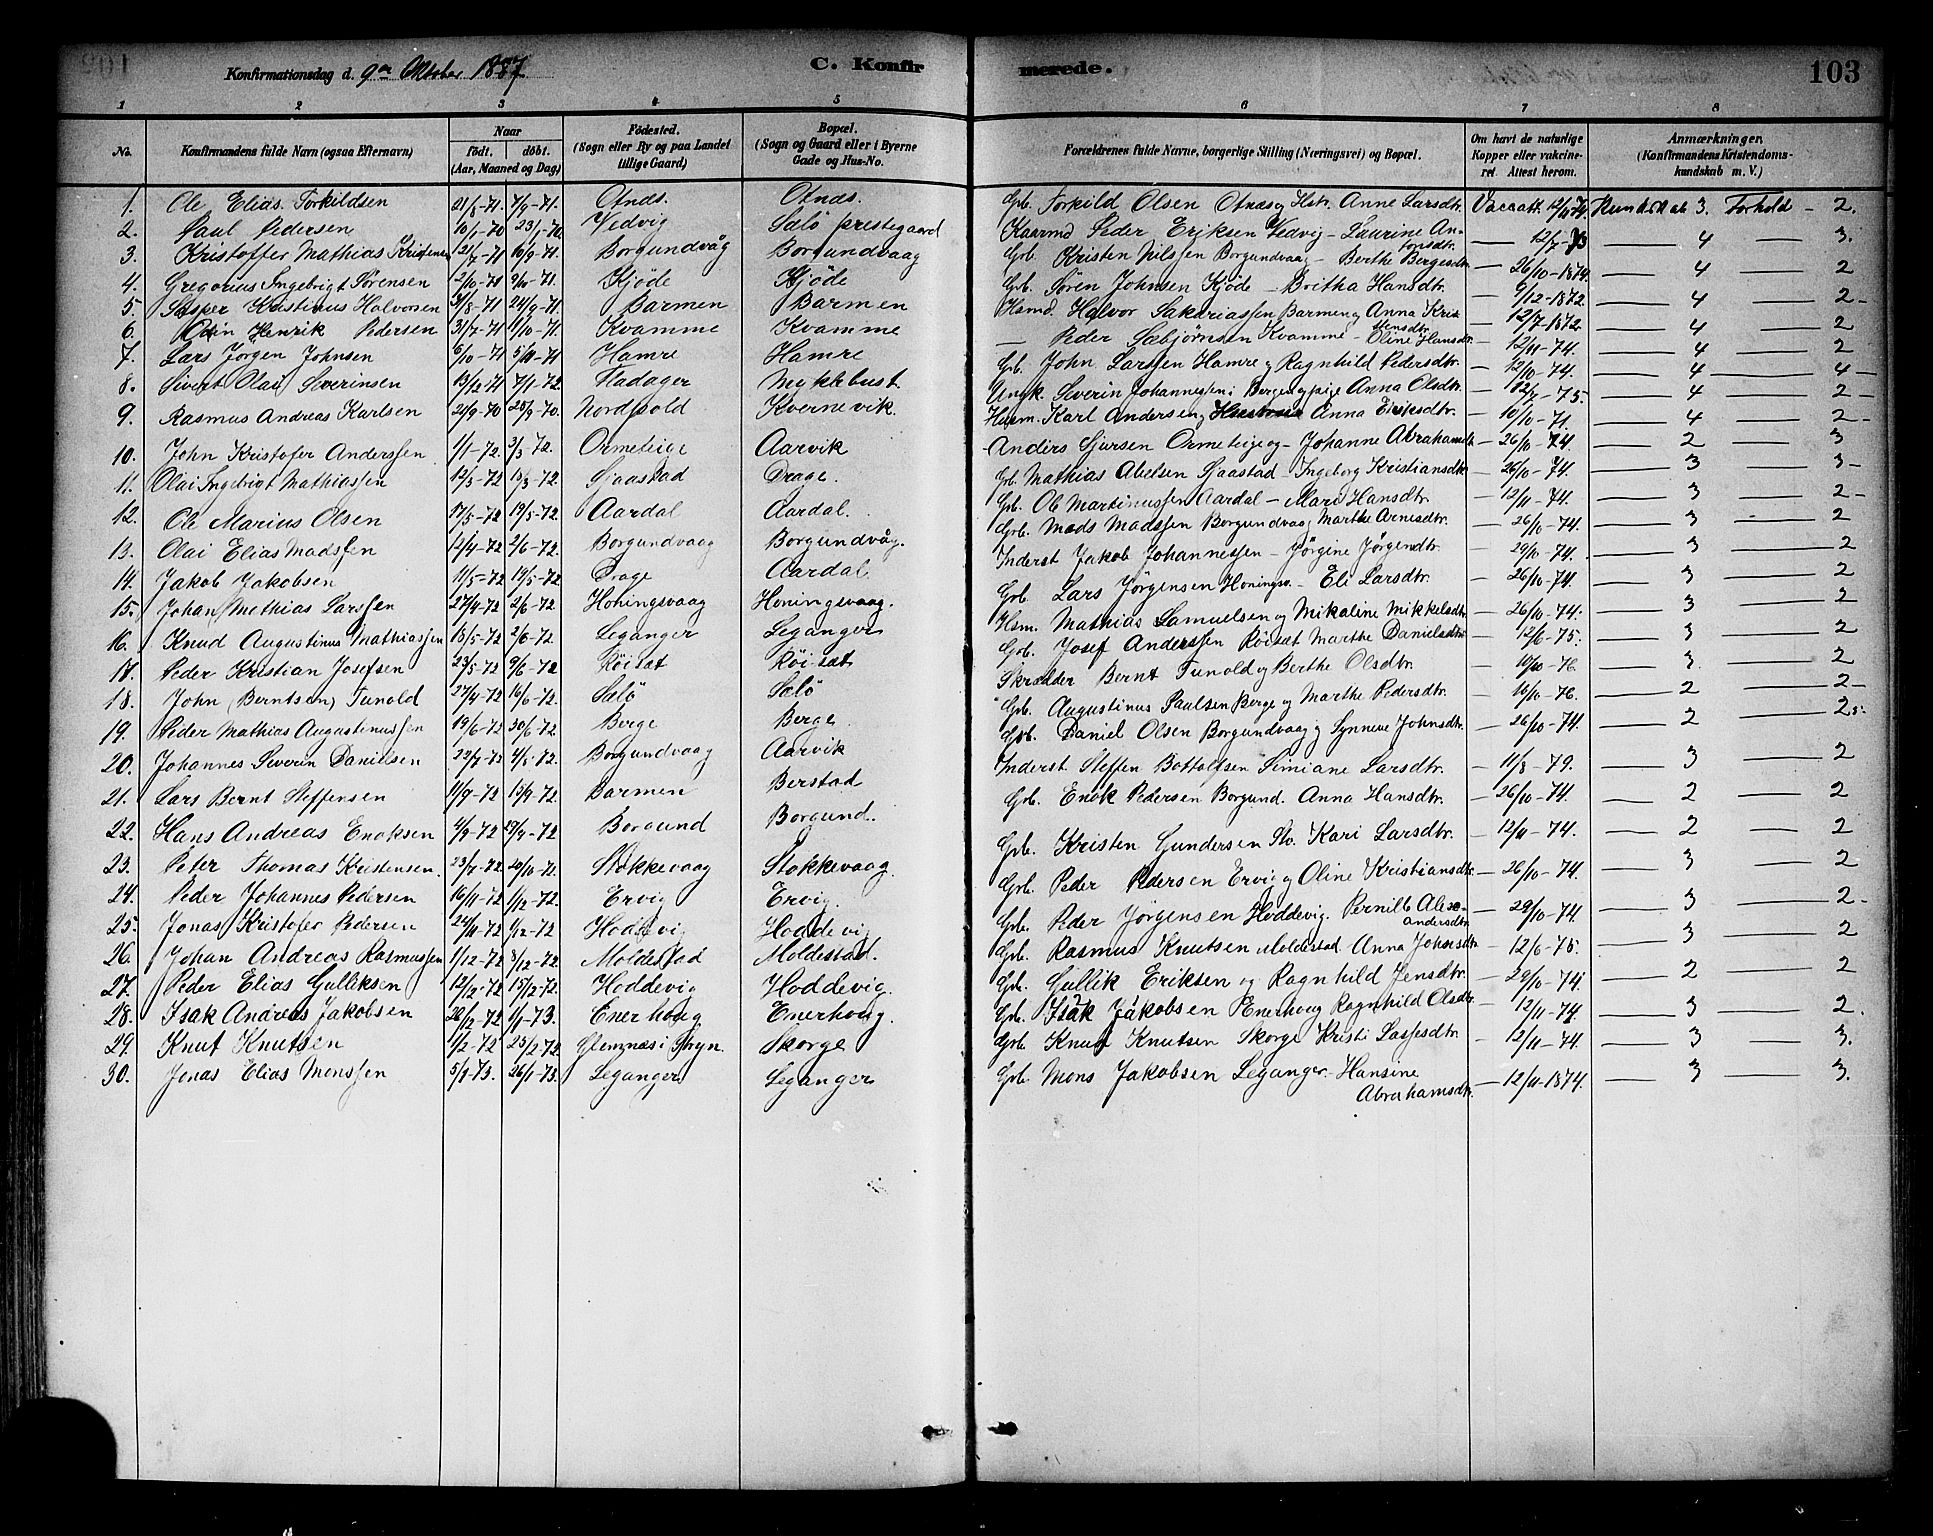 Konfirmationsdag d. 9de Oktober 1887 C. Konfirmerede. 103
1 2 3 4 5 6 7 8
No. Konfirmandens fulde Navn (ogsaa Efternavn) Naar født. døbt. (Aar, Maaned og Dag) Fødested. (Sogn eller By og paa Landet tillige Gaard) Bopæl. (Sogn og Gaard eller i Byerne Gade og Hus-No. Forældrenes fulde Navne, borgerlige Stilling (Næringsvei) og Bopæl. Om havt de naturlige Kopper eller vakcineret. Attest herom. Anmærkninger. (Konfirmandens Kristendomskundskab m. V.)
1. Ole Elias Torkildsen 21/8-71. 7/9-71. Otnæs. Otnæs. Gbr. Torkild Olsen Otnæs og Hstr. Anne Larsdtr. Vaccatt. 12/11 74. Kundskab 3. Forhold - 2.
2. Paul Pedersen 10/1-70 23/1-70. Vedvig Selö prestegaard Kaarmd Peder Eriksen Vedvig - Laurine Antonsdtr. — 12/7-73 — 4 — 3.
3. Kristoffer Mathias Kristensen 12/7-71 10/9-71. Borgundvåg Borgundvaag Gbr. Kristen Nilssen Borgundvaag - Berthe Bergesdtr. — 26/10-1874. — 4 — 2
4. Gregorius Ingebrigt Sörensen 2/10-71 9/10-71. Kjöde Kjöde Gbr. Sören Johnsen Kjöde - Britha Hansdtr. — 6/12-1872. — 4 — 2-
5. Jesper Kristinus Halvorsen 31/8-71 24/9-71. Barmen Barmen Hsmd. Halvor Sakariassen Barmen og Anna Kristensdtr. — 12/7-1872. — 4 — 2
6. Henrik Pedersen 31/7-71 11/10-71. Kvamme Kvamme — Peder Sæbjörnsen Kvamme - Oline Hansdtr. — 12/11-74. — 4 — 2
7. Lars Jörgen Johnsen 6/10-71 5/11-71 Hamre Hamre Gb. John Larssen Hamre og Ragnhild Pedersdtr. — 12/10-74. — 4 — 4-
8. Sivert Olai Severinsen 13/12-71 7/1-72 Fladager Myklebust Ungk. Severin Johannessen i Berge og pige Anna Olsdtr. — 12/7-75- — 4 — 2-
9. Rasmus Andreas Karlsen 21/9-70 25/9-70. Nordpold Kvernevik. Husm. Karl Andersen og Anna Eriksdtr. — 10/10-71. — 4 — 2-
10. John Kristofer Anderssen 1/1-72. 3/3 72. Ormeteige Aarvik Anders Sjursen Ormeteige og - Johanne Abrahamsdtr. — 26/10-74. 2 — 3
11. Olai Ingebrigt Mathiassen 12/3-72 13/3-72. Sjaastad Drage. Gb. Mathias Abelsen Sjaastad - Ingeborg Kristiansdtr. — 26/10-74. — 3 — 3-
12. Ole Marius Olsen 17/5-72 19/5-72. Aardal Aardal. Gb. Ole Martinussen Aardal - Mari Hansdtr. — 12/11-74. — 3 — 2-
13. Olai Elias Madssen 12/4-72 2/6-72. Borgundvaag Borgundvåg. Grb. Mads Madssen Borgundvaag Marthe Arnesdtr. — 26/10-74. — 3 — 2
14. Jakob Jakobsen 11/5-72 19/5-72 Drage Aardal. Inderst Jakob Johannessen - Jörgine Jörgendtr. — 29/10-74. — 3 — 2
15. Johan Mathias Larssen 27/4-72 2/6-72. Honingsvaag Honingsvaag. Gb. Lars Jörgensen Honingsv. - Eli Larsdtr. — 26/10-74. — 3 — 2
16. Knud Augustinus Mathiassen 18/5-72 2/6-72. Leganger Leganger Hsm. Mathias Samuelsen og Mikaline Mikkelsdtr. — 26/10-74. — 3 — 2
17. Peder Kristian Josefsen 23/5-72 9/6-72 Röisæt Röisæt Grb. Josef Anderssen Röisæt Marthe Danielsdtr. — 12/6-75. — 3 — 2
18. John (Berntsen) Tunold 27/4-72 16/6-72. Selö Selö Skrædder Bernt Tunold og Berthe Olsdtr. — 10/10-76. — 3. — 2
19. Peder Mathias Augustinussen 19/6-72 30/6-72 Berge Berge. Gb. Augustinus Paulsen Berge og Marthe Pedersdtr. — 10/10-76. — 2 — 2-
20. Johannes Severin Danielsen Borgundvaag Aarvik Grb. Daniel Olsen Borgundvaag og Synneve Johnsdtr. — 26/10-74. — 2 — 2
21. Lars Bernt Steffensen 11/9-72 15/9-72. Barmen Berstad Inderst Steffen Bottolfsen Simiane Larsdtr. — 11/8-79. — 3 — 2
22. Hans Andreas Enoksen 4/9-72 29/9-72 Borgund Borgund. Grb. Enok Pedersen Borgund. Anna Hansdtr. — 26/10-74. — 2 — 2
23. Peter Thomas Kristensen. 23/7-72. 20/10-72. Stokkevaag Stokkevaag. Grb. Kristen Gundersen Sto. Kari Larsdtr. — 12/11-74. — 2 — 2
24. Peder Johannes Pedersen 16/11-72 1/12-72. Ervig Ervig. Grb. Peder Pedersen Ervig og Oline Kristiansdtr. — 26/10-74. — 3 — 2
25. Jonas Kristofer Pedersen 24/11-72 1/12-72 Hoddevig Hoddevig Grb. Peder Jörgensen Hoddevig. Pernille Alexandersdtr. — 29/10-74 — 3 — 2-
26. Johan Andreas Rasmussen 1/12-72 8/12-72. Moldestad Moldestad. Gb. Rasmus Knutsen Moldestad Anna Johnsdtr. — 12/6-75. — 3 — 2
27. Peder Elias Gulliksen 12/12-72 15/12-72. Hoddevig Hoddevig. Gb. Gullik Eriksen og Ragnhild Jensdtr. — 29/10-74. — 2 — 2
28. Isak Andreas Jakobsen 20/12-72 1/1-73. Enerhoug Enerhoug. Gb. Isak Jakobsen Enerhoug Ragnhild Olsdtr. — 12/11-74. — 3 — 2.
29. Knut Knutsen 1/2-72 25/2-72. Glemnæs i Gryn. Skorge Grb. Knut Knutsen Skorge Kristi Lassesdtr. — 12/11-74. — 3 — 3.
30. Jonas Elias Monssen 5/1-73. 26/1-73. Leganger Leganger Grb. Mons Jakobsen Leganger. Hansine Abrahamsdtr. — 12/11-1874. — 3 — 3.